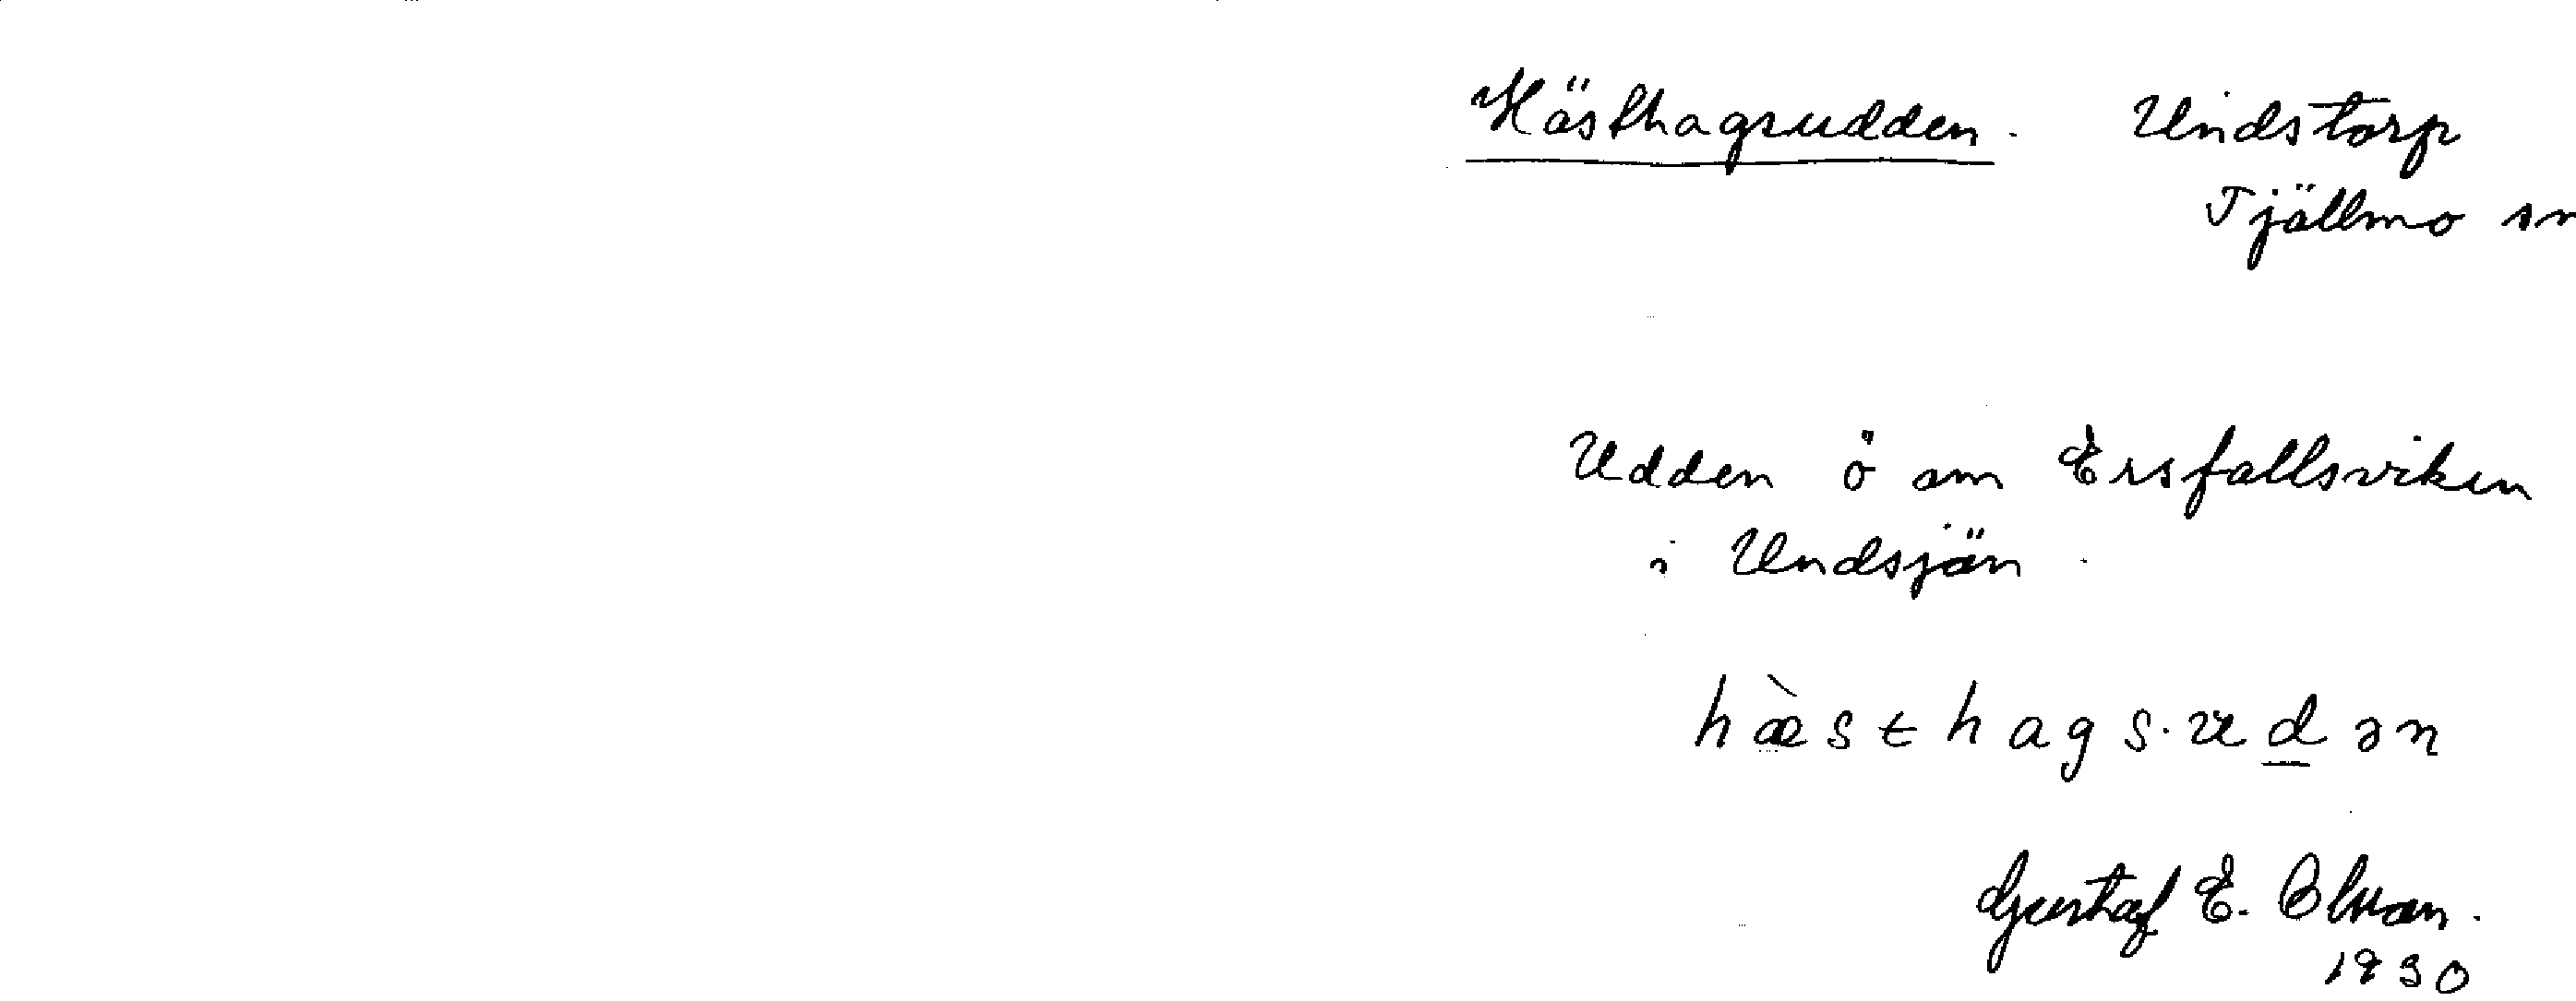 Hästhagsudden. Undstorp
Tjällmo sn
Udden ö om Ersfallsviken
i Undsjön.
hæ̀sthags·udən
Gustaf E. Olsson.
1930